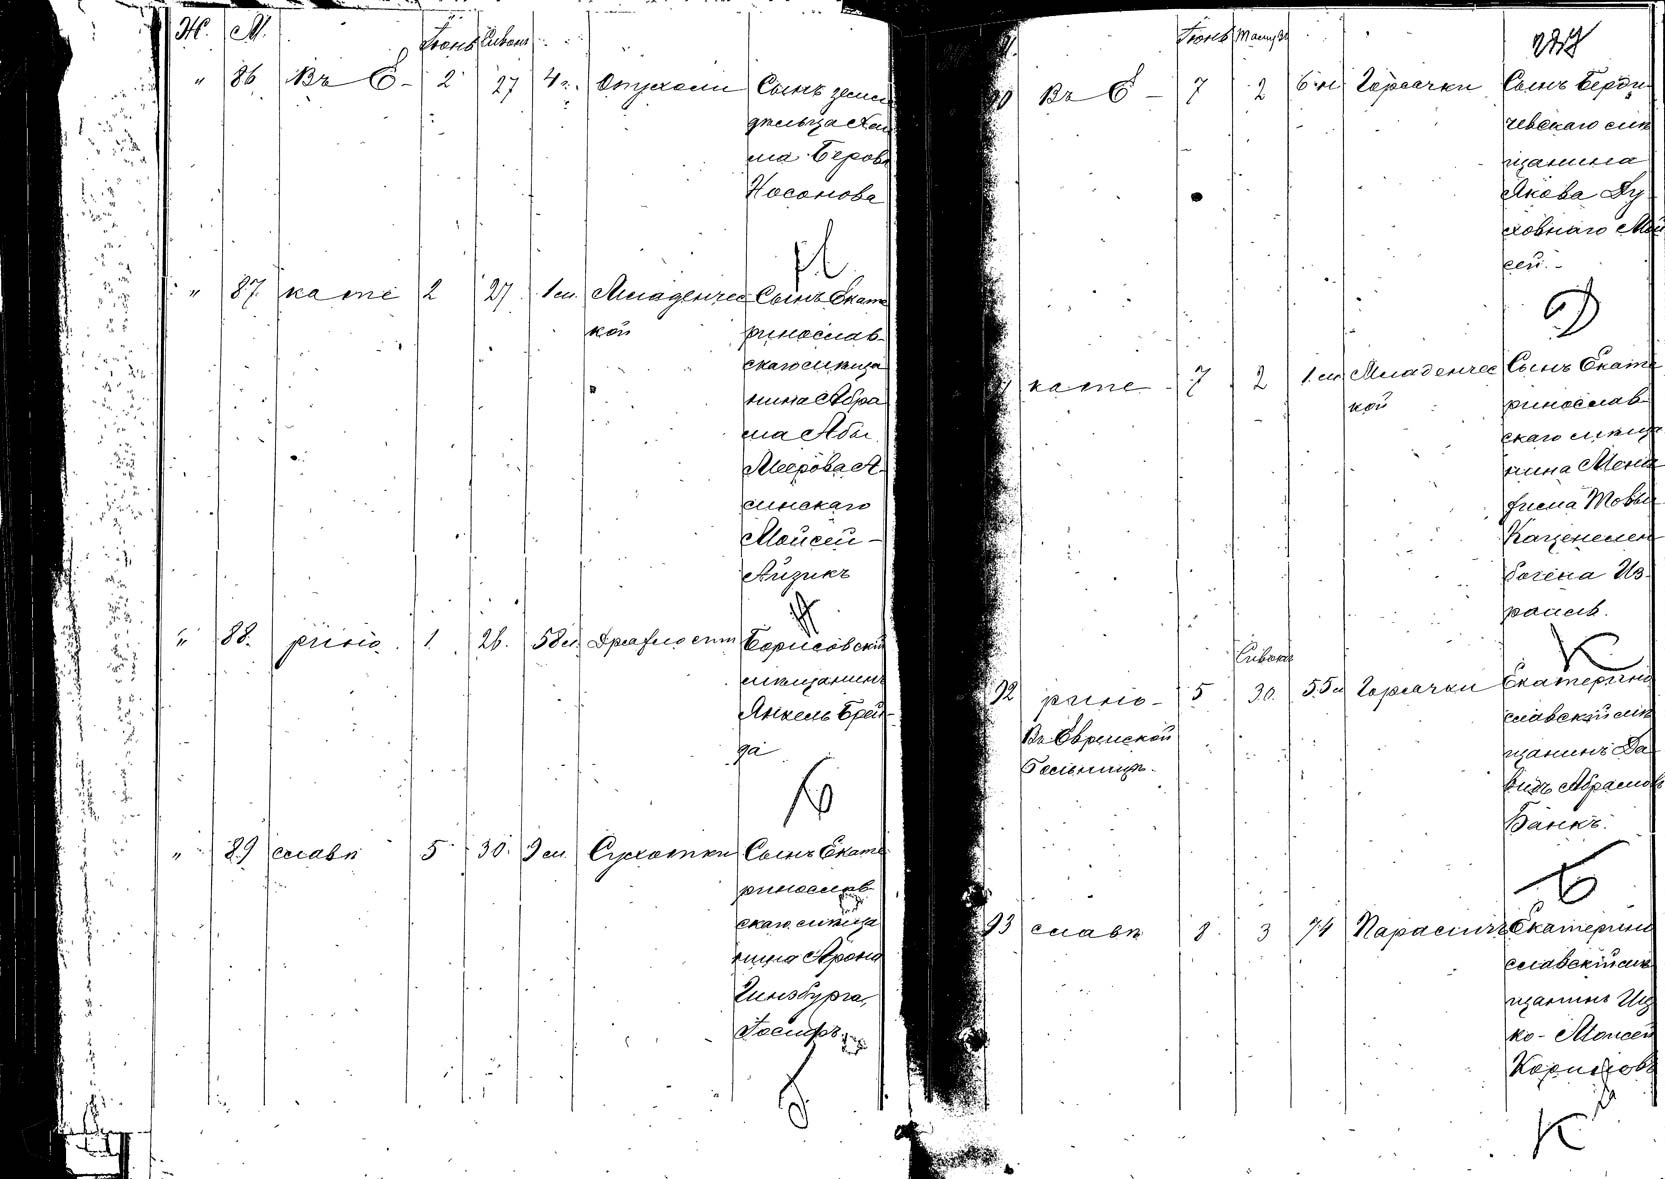 Ж. М. Іюнь Сивонъ
" 86 Въ Е- 2 27 4 г. Опухоли Сынъ земле
дѣльца Хаи
ма Берова
Носонова
Н
" 87. кате 2 27 1 м. Младенчес Сынъ Екате
кой ринослав-
скаго мѣща
нина Абра
ма Абы
Меерова А-
минскаго
Мойсей-
Айзикъ
А
" 88. рино 1 26. 58 л. Дряхлости Борисовскій
мѣщанинъ
Янкель Брей-
да
Б
" 89 славѣ 5 30. 9 м. Сухотки Сынъ Екате
ринослав-
скаго мѣща
нина Арона
Гинзбурга,
Іосифъ.
Г
М. Іюнь Тамузъ
90 Въ Е- 7 2 6 м Горячки Сынъ Берди-
чевскаго мѣ
щанина
Якова Ду-
ховнаго Мой
сей.-
Д
91 кате- 7 2 1 м. Младенчес Сынъ Екате
кой ринослав-
скаго мѣща
нина Мена
хема Товьи
Каценелен
богена Из-
раиль.
К
Сивонъ
92 рино- 5 30. 55 л Горячки Екатерино
славскій мѣ
Въ Еврейской щанинъ Да-
Больницѣ. видъ Абрамовъ
Банкъ.
Б
93 славѣ 8. 3 74 Параличъ Екатерино
славскій мѣ
щанинъ Иц
ко-Мойсей
К